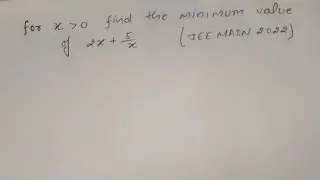 for x>0 find the minimum value
of 2x + 5/x (JEE MAIN 2022)